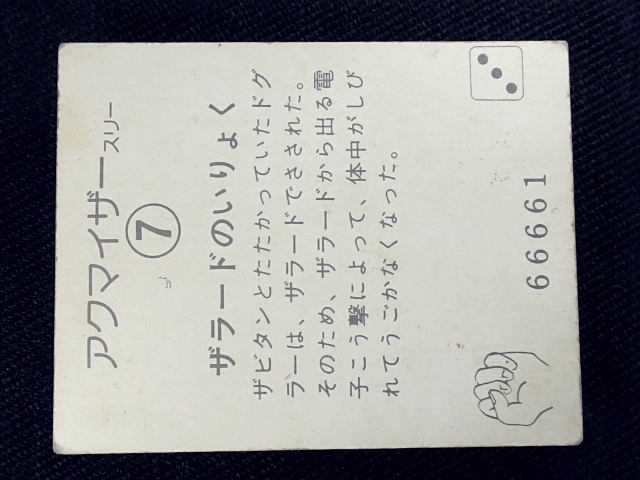 アクマイザースリー
⑦
ザラードのいりょく
ザビタンとたたかっていたドグ
ラーは、ザラードでさされた。
そのため、ザラードから出る電
子こう撃によって、体中がしび
れてうごかなくなった。
66661